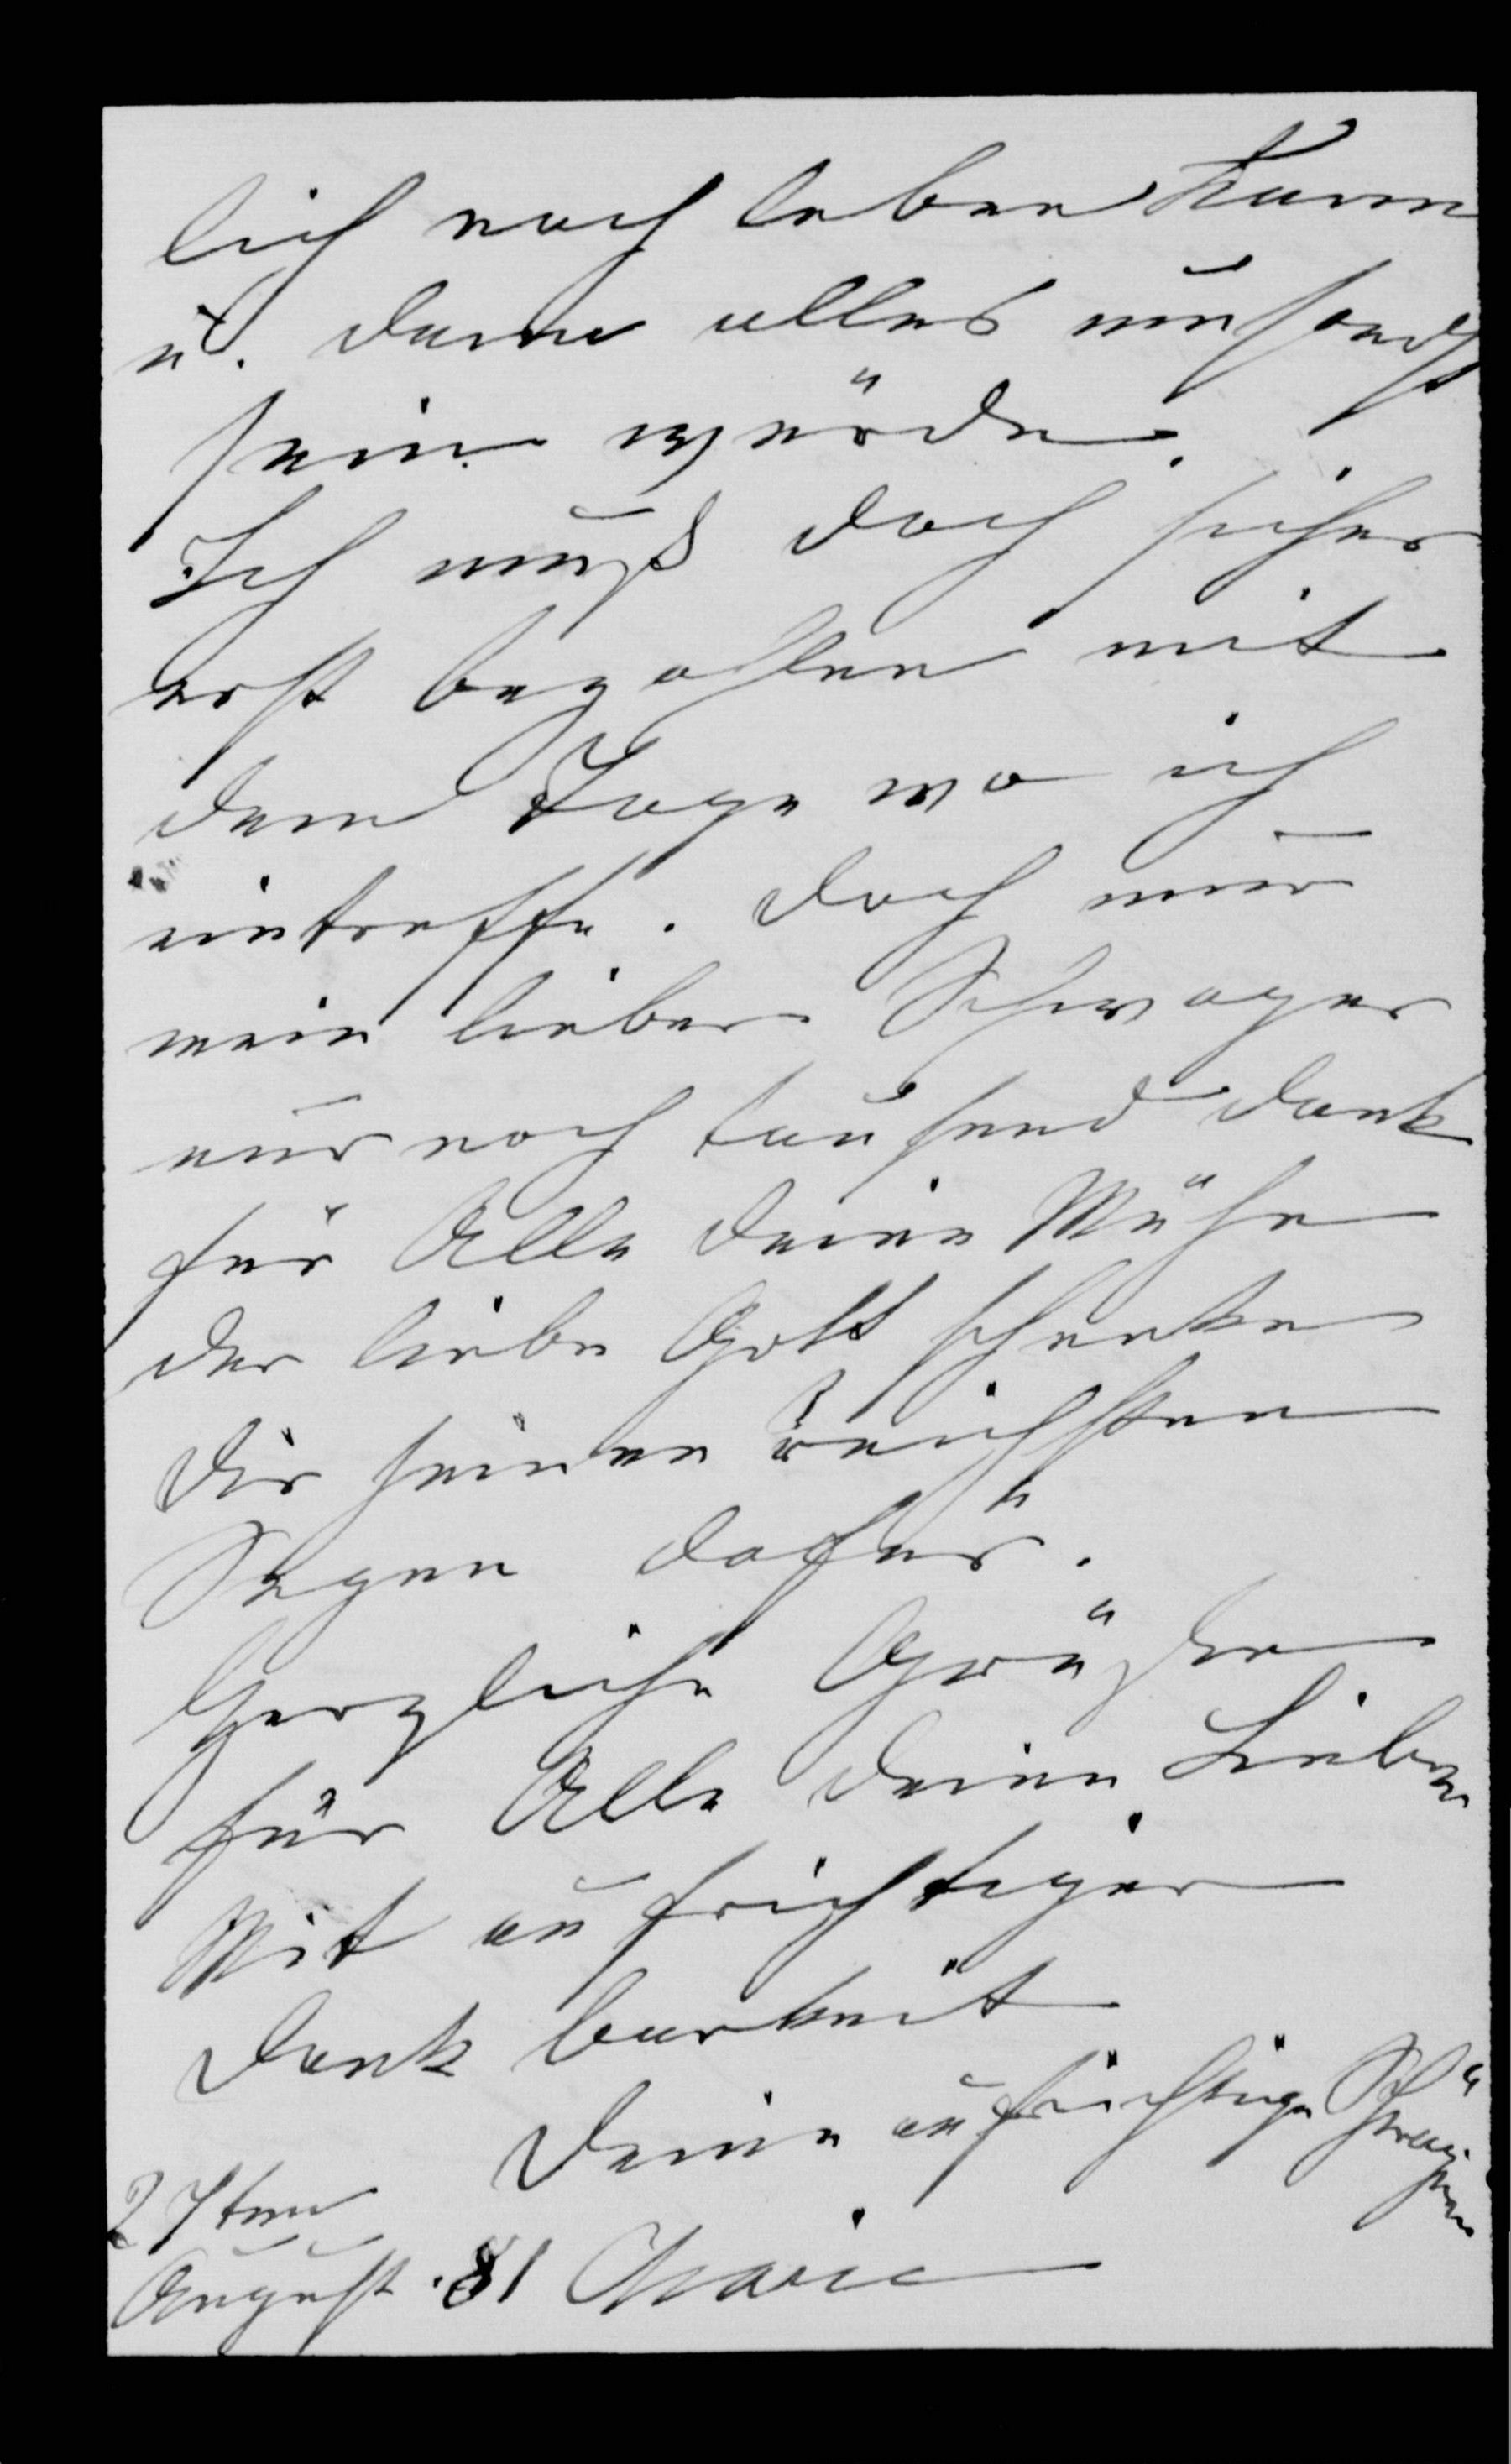 lich noch leben kann
u. dann alles umsonst
sein würde.
Ich muß doch sicher
erst bezahlen mit
dem Tage wo ich
eintreffe. Doch nun
mein lieber Schwager
nur noch tausend Dank
für Alle Deine Mühe
der liebe Gott schenke
Dir seinen reichsten
Segen dafür.
Herzliche Grüße
für Alle Deine Lieben
Mit aufrichtiger
Dankbarkeit
Deine aufrichtige Schwägerin
27ten
August. 81 Marie